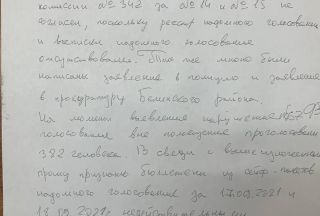 комиссии №342 за №14 и №15 не
согласен, поскольку реестр надомного голосования
и выписки надомного голосования
отсутствовали. Так же мною были
написаны заявление в полицию и заявление
в прокуратуру района.
На момент выявления нарушения
голосование вне помещения проголосовали
382 человека. В связи с вышеизложенным
прошу признать бюллетени из сейф-пакетов
надомного голосования за 17.09.2021 и
18.09.2021г. недействительными